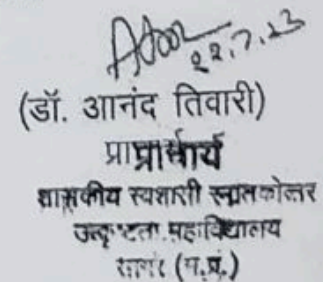 22.7.23
(डॉ. आनंद तिवारी)
प्राचार्य
शासकीय स्वशासी स्नातकोत्तर
उत्कृष्टता महाविद्यालय
सागर (म.प्र.)